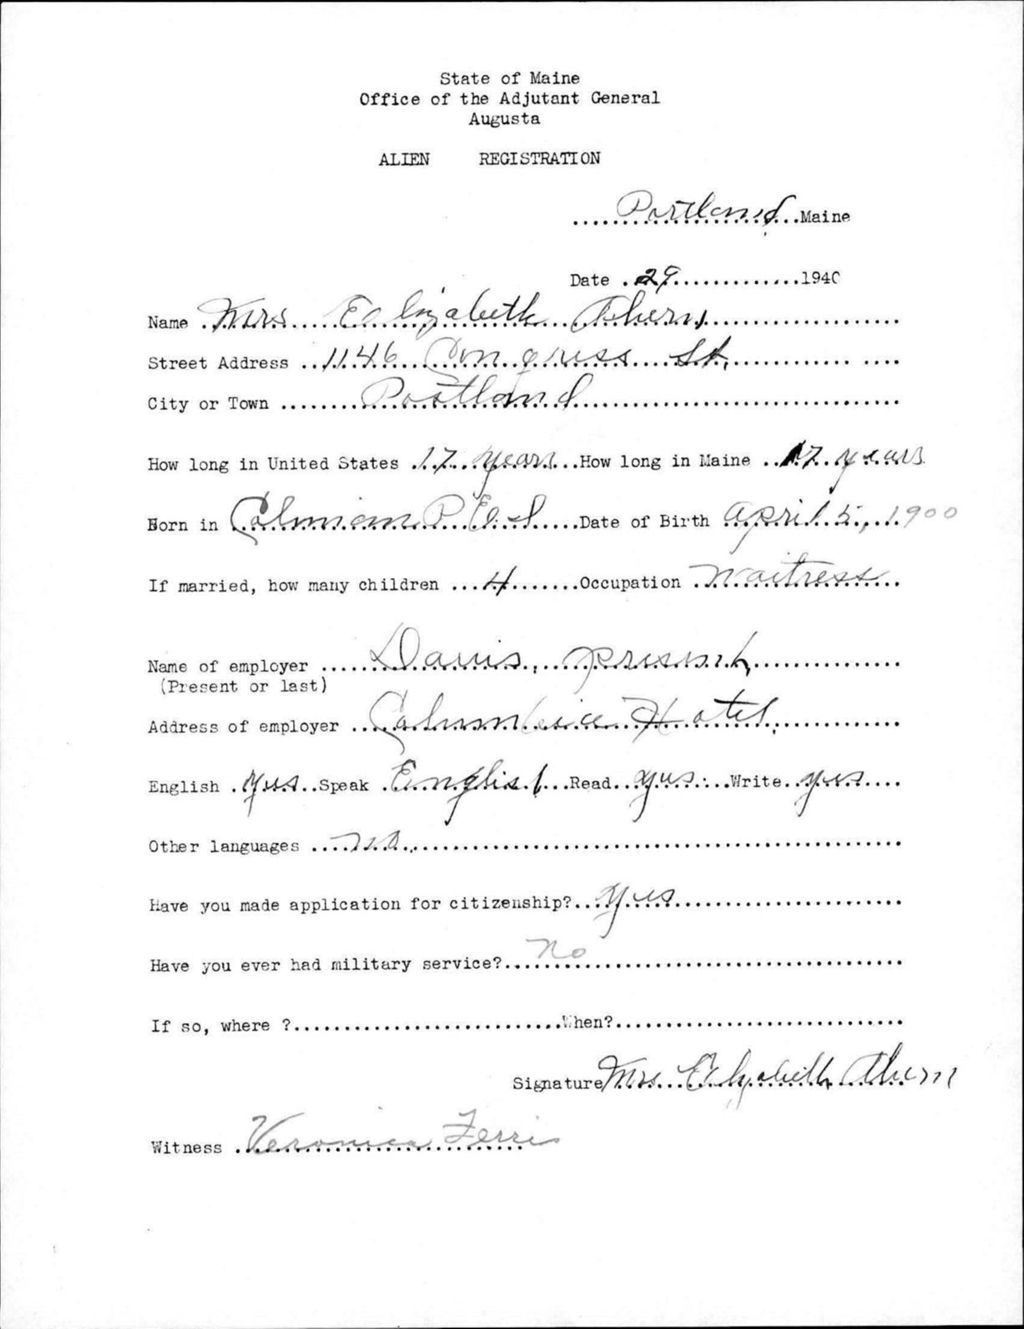 State of Maine
Office of the Adjutant General
Augusta
ALIEN REGISTRATION
Portland Maine
Date 29 1940
Name Mrs Elizabeth Ahern
Street Address 1146 Congress St.
City or Town Portland
How long in United States 17 years How long in Maine 17 years
Born in P E I Date of Birth April 5, 1900
If married, how many children 4 Occupation Waitress
Name of employer Davis, present
(Present or last)
Address of employer Columbia Hotel
English yes Speak English Read yes Write yes
Other languages no
Have you made application for citizenship? yes
Have you ever had military service? no
If so, where ? When?
Signature Mrs. Elizabeth Ahern
Witness Veronica Ferris